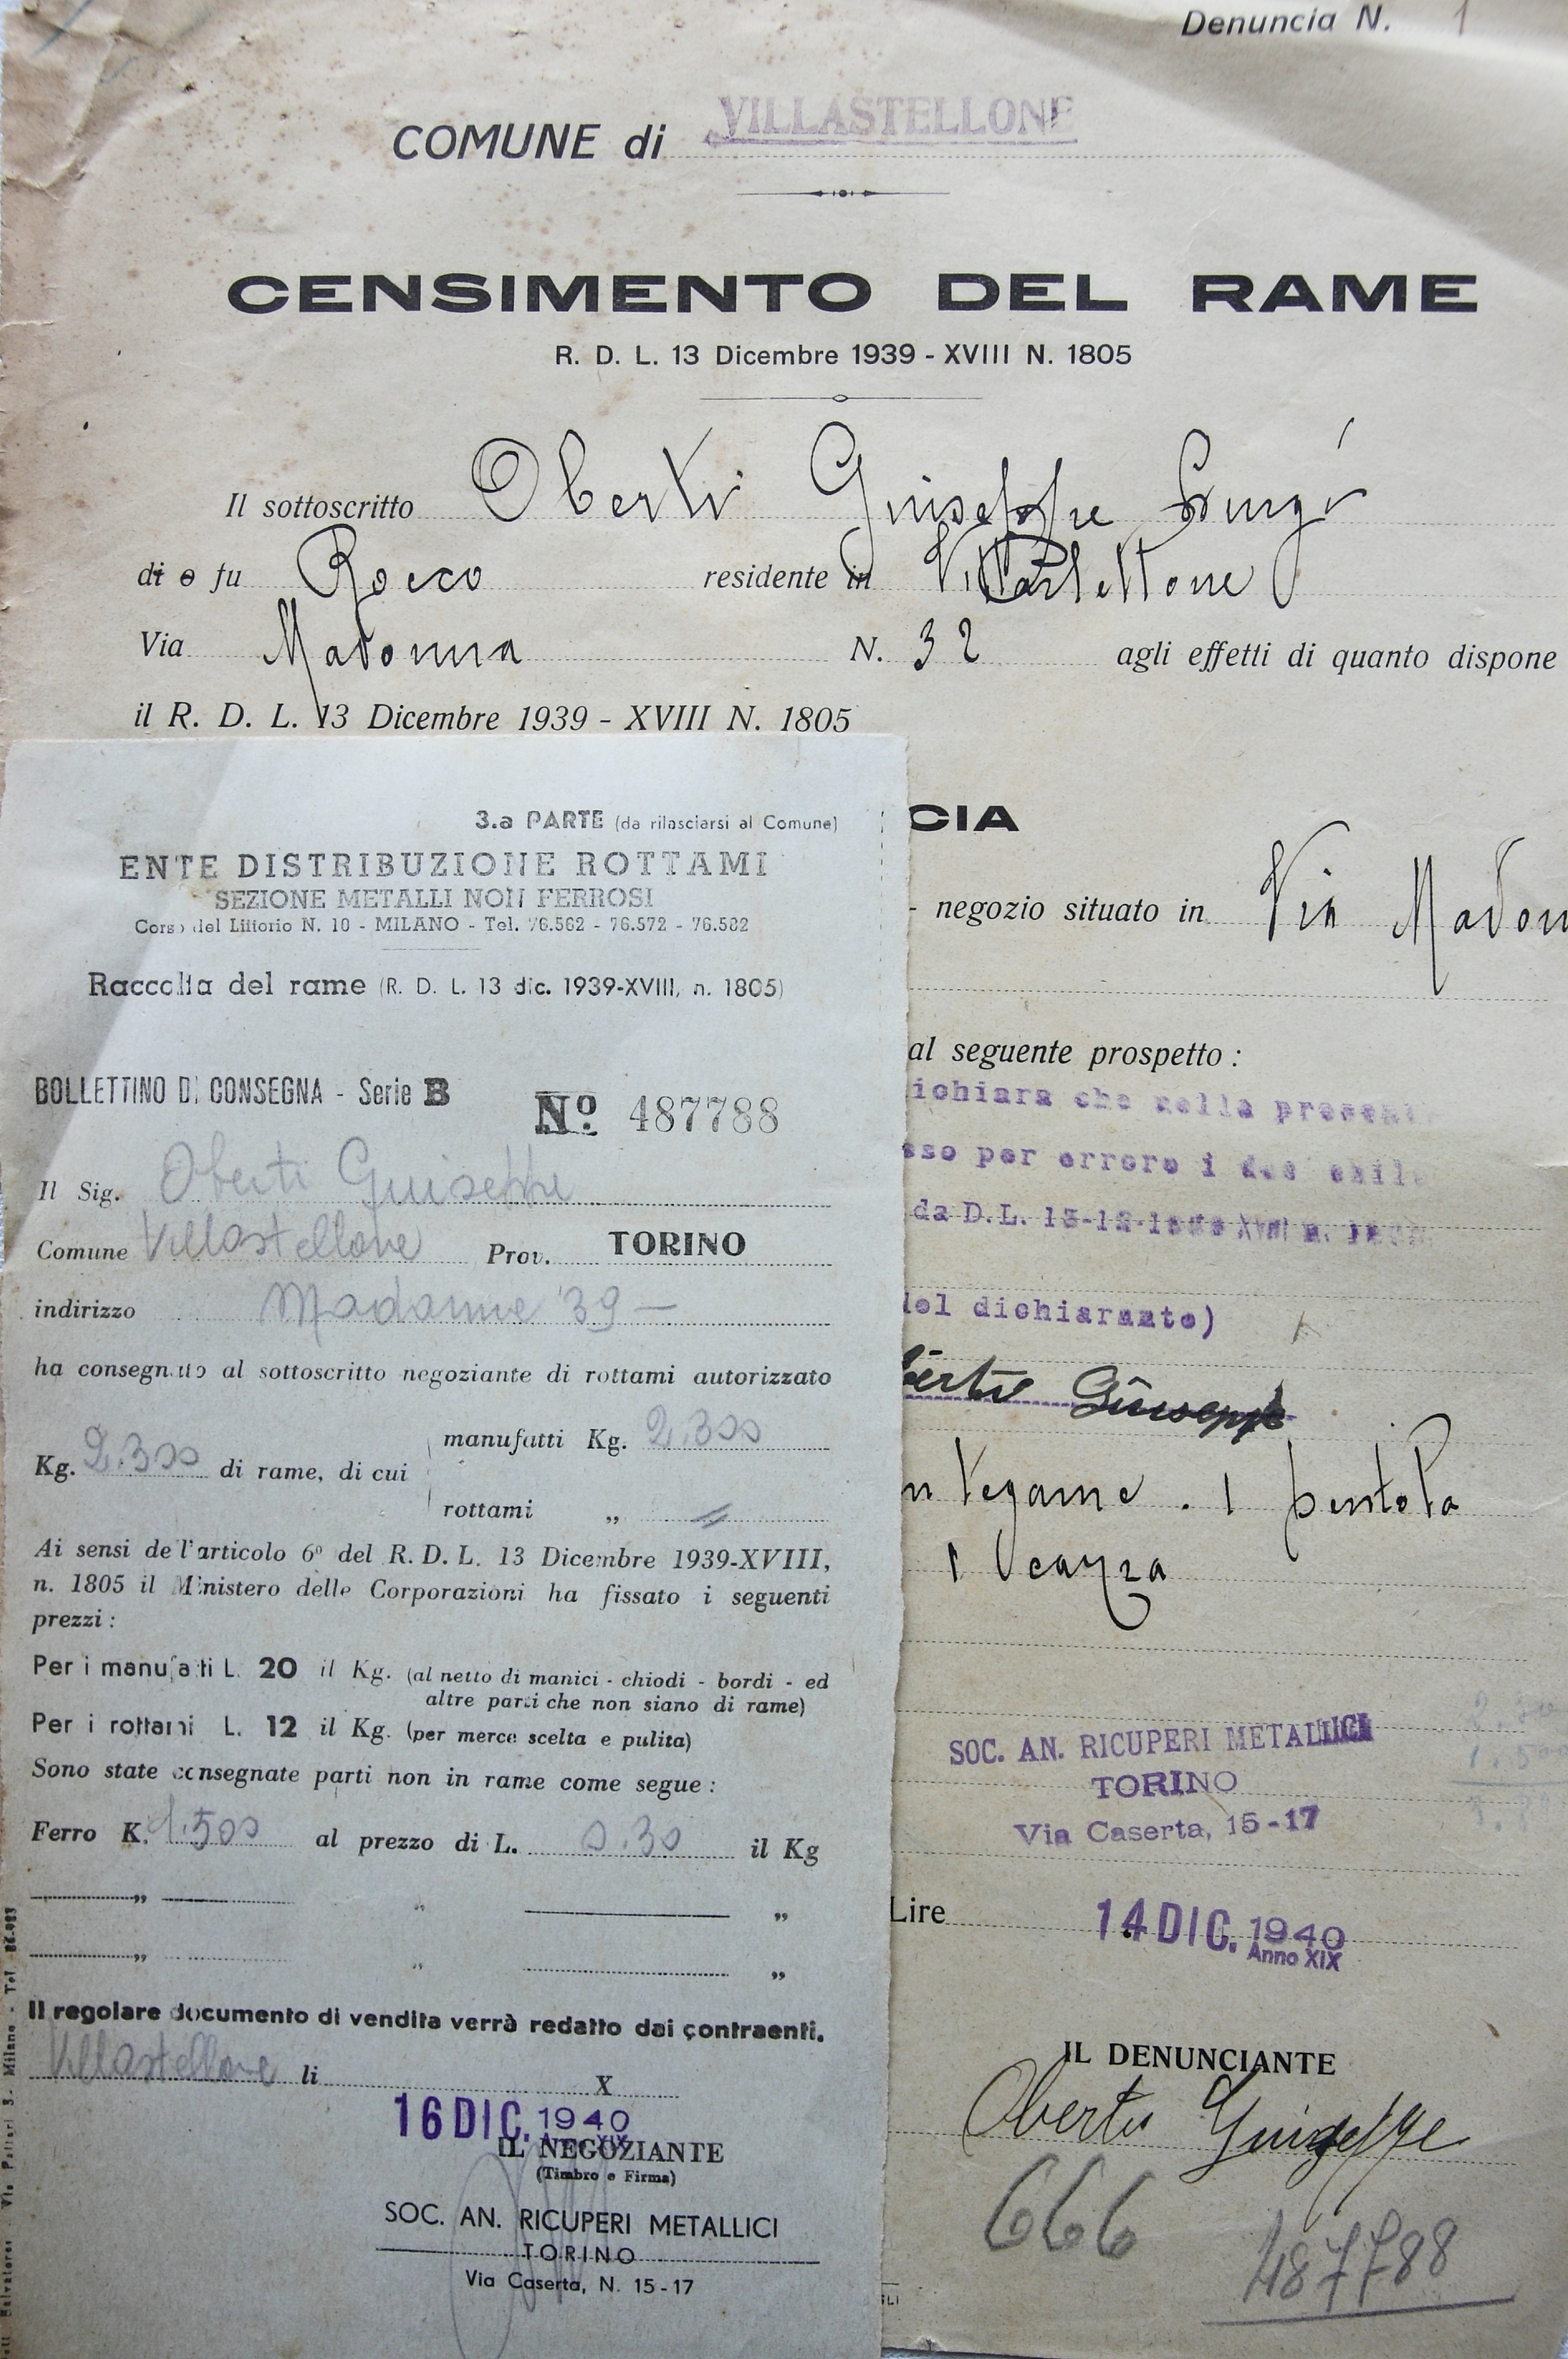 Denuncia N. 1
COMUNE di VILLASTELLONE
CENSIMENTO DEL RAME
R. D. L. 13 Dicembre 1939 - XVIII N. 1805
Il sottoscritto Oberti Giuseppe Luigi
di o fu Rocco residente in Villastellone
Via Madonna N. 32 agli effetti di quanto dispone
il R. D. L. 13 Dicembre 1939 - XVIII N. 1805
CIA
- negozio situato in Via Madon
al seguente prospetto :
ichiara che nella present
sso per errore i due
da D.L. 13-12-1939 XVIII n. 1805
del dichiarante)
berti Giuseppe
n tegame . 1 pentola
1
SOC. AN. RICUPERI METALLICI
TORINO
Via Caserta, 15-17
Lire
14 DIC. 1940
Anno XIX
IL DENUNCIANTE
Oberti Giuseppe
666
487788
3.a PARTE (da rilasciarsi al Comune)
ENTE DISTRIBUZIONE ROTTAMI
SEZIONE METALLI NON FERROSI
Corso del Littorio N. 10 - MILANO - Tel. 76.562 - 76.572 - 76.582
Raccolta del rame (R. D. L. 13 dic. 1939-XVIII, n. 1805)
BOLLETTINO DI CONSEGNA - Serie B Nº 487788
Il Sig. Oberti Guiseppe
Comune Villastellone Prov. TORINO
indirizzo Madonna 39 —
ha consegnato al sottoscritto negoziante di rottami autorizzato
Kg. 2.300 di rame, di cui
manufatti Kg. 2.300
rottami „ //
Ai sensi de l'articolo 6º del R. D. L. 13 Dicembre 1939-XVIII,
n. 1805 il Ministero delle Corporazioni ha fissato i seguenti
prezzi :
Per i manufatti L. 20 il Kg. (al netto di manici - chiodi - bordi - ed
altre parti che non siano di rame)
Per i rottami L. 12 il Kg. (per merce scelta e pulita)
Sono state consegnate parti non in rame come segue :
Ferro K. 1.500 al prezzo di L. 0.30 il Kg
„ „ „
„ „ „
Il regolare documento di vendita verrà redatto dai contraenti.
Villastellone li X
16 DIC. 1940
IL NEGOZIANTE
(Timbro e Firma)
SOC. AN. RICUPERI METALLICI
TORINO
Via Caserta, N. 15-17